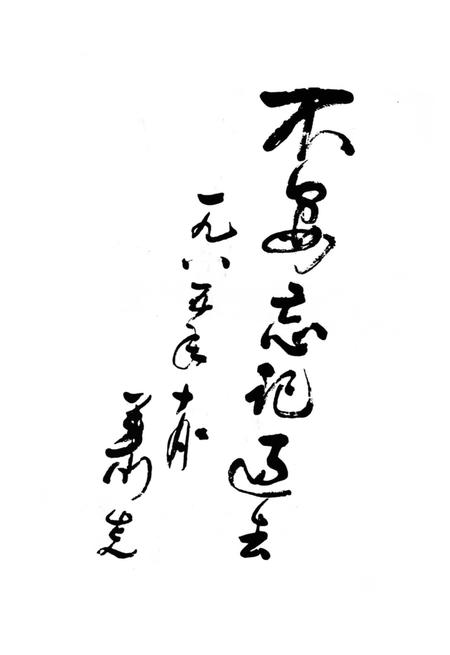 不要忘记过去
一九八五年十月
萧克